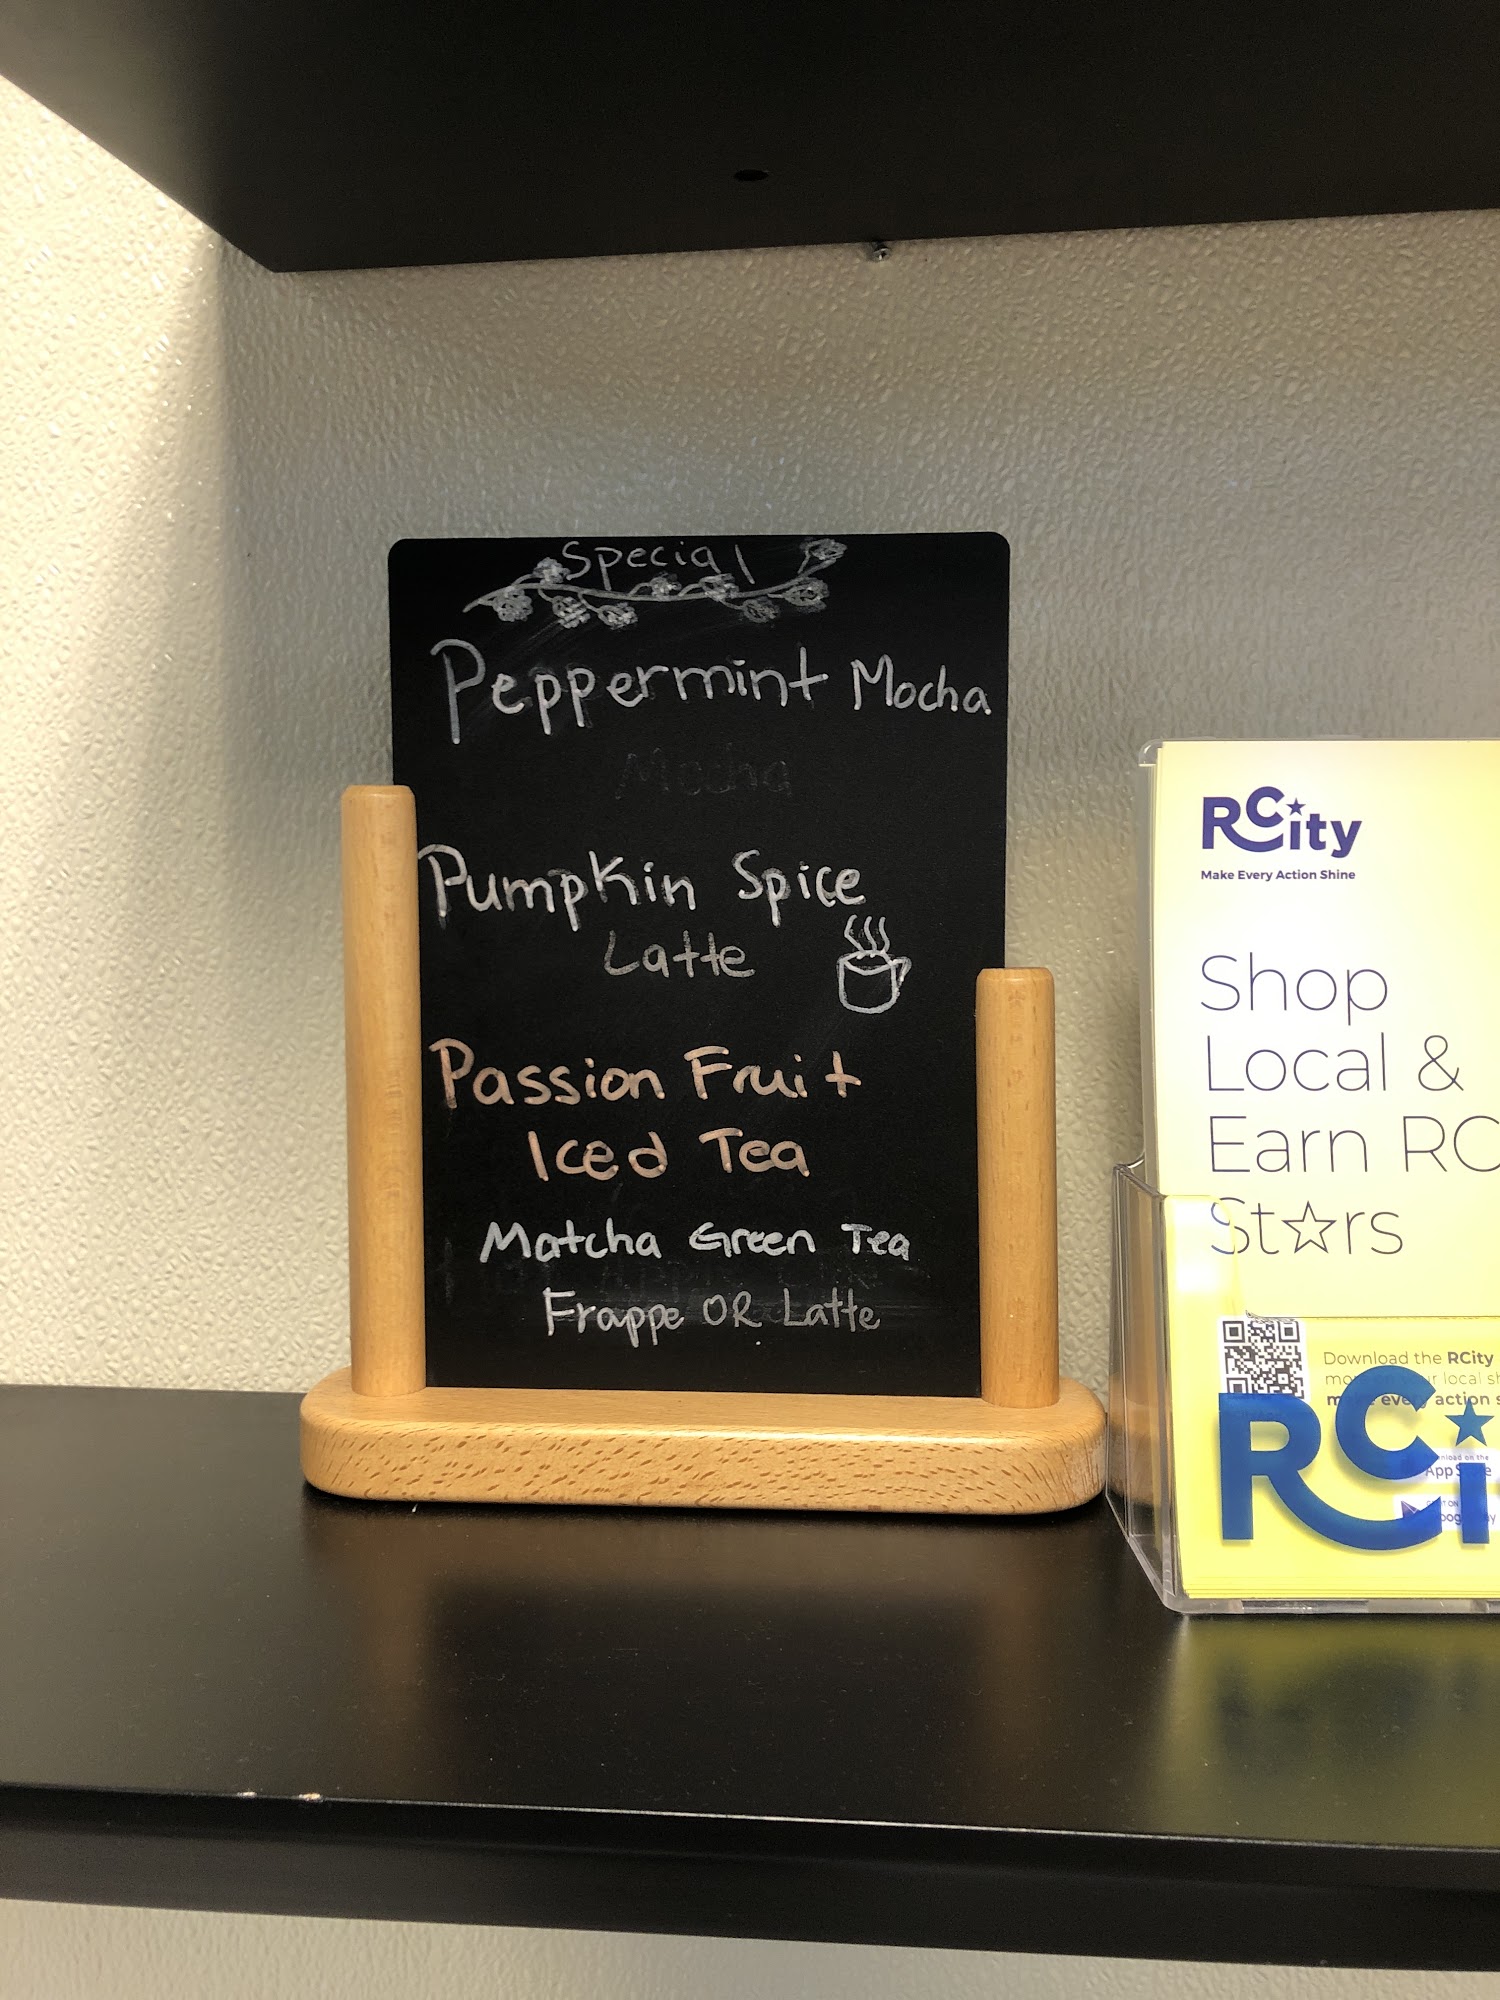 Special
Peppermint Mocha
Mocha
Pumpkin Spice
Latte
Passion Fruit
Iced Tea
Matcha Green Tea
Frappe OR Latte
RCity
Make Every Action Shine
Shop
Local &
Earn RC
Stars
Download the RCity
your local
make every action
RCi